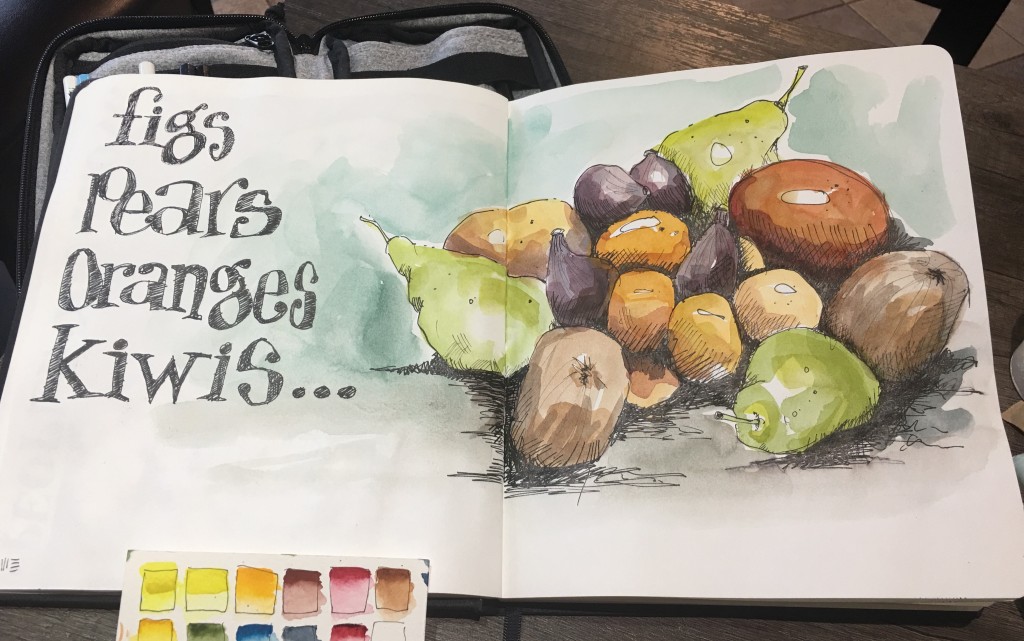 figs
Pears
Oranges
Kiwis...